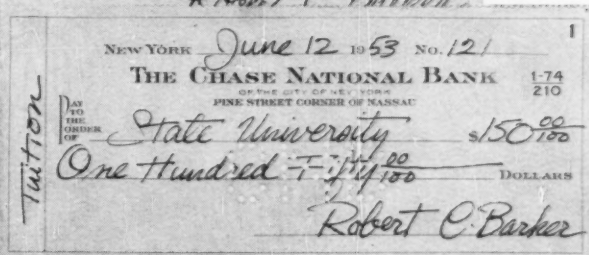 1
NEW YORK June 12 1953 No. 121
THE CHASE NATIONAL BANK 1-74/210
OF THE CITY OF NEW YORK
PINE STREET CORNER OF NASSAU
PAY TO THE ORDER OF State University $150 00/100
One Hundred Fifty 00/100 DOLLARS
Robert C. Barker
Tuition